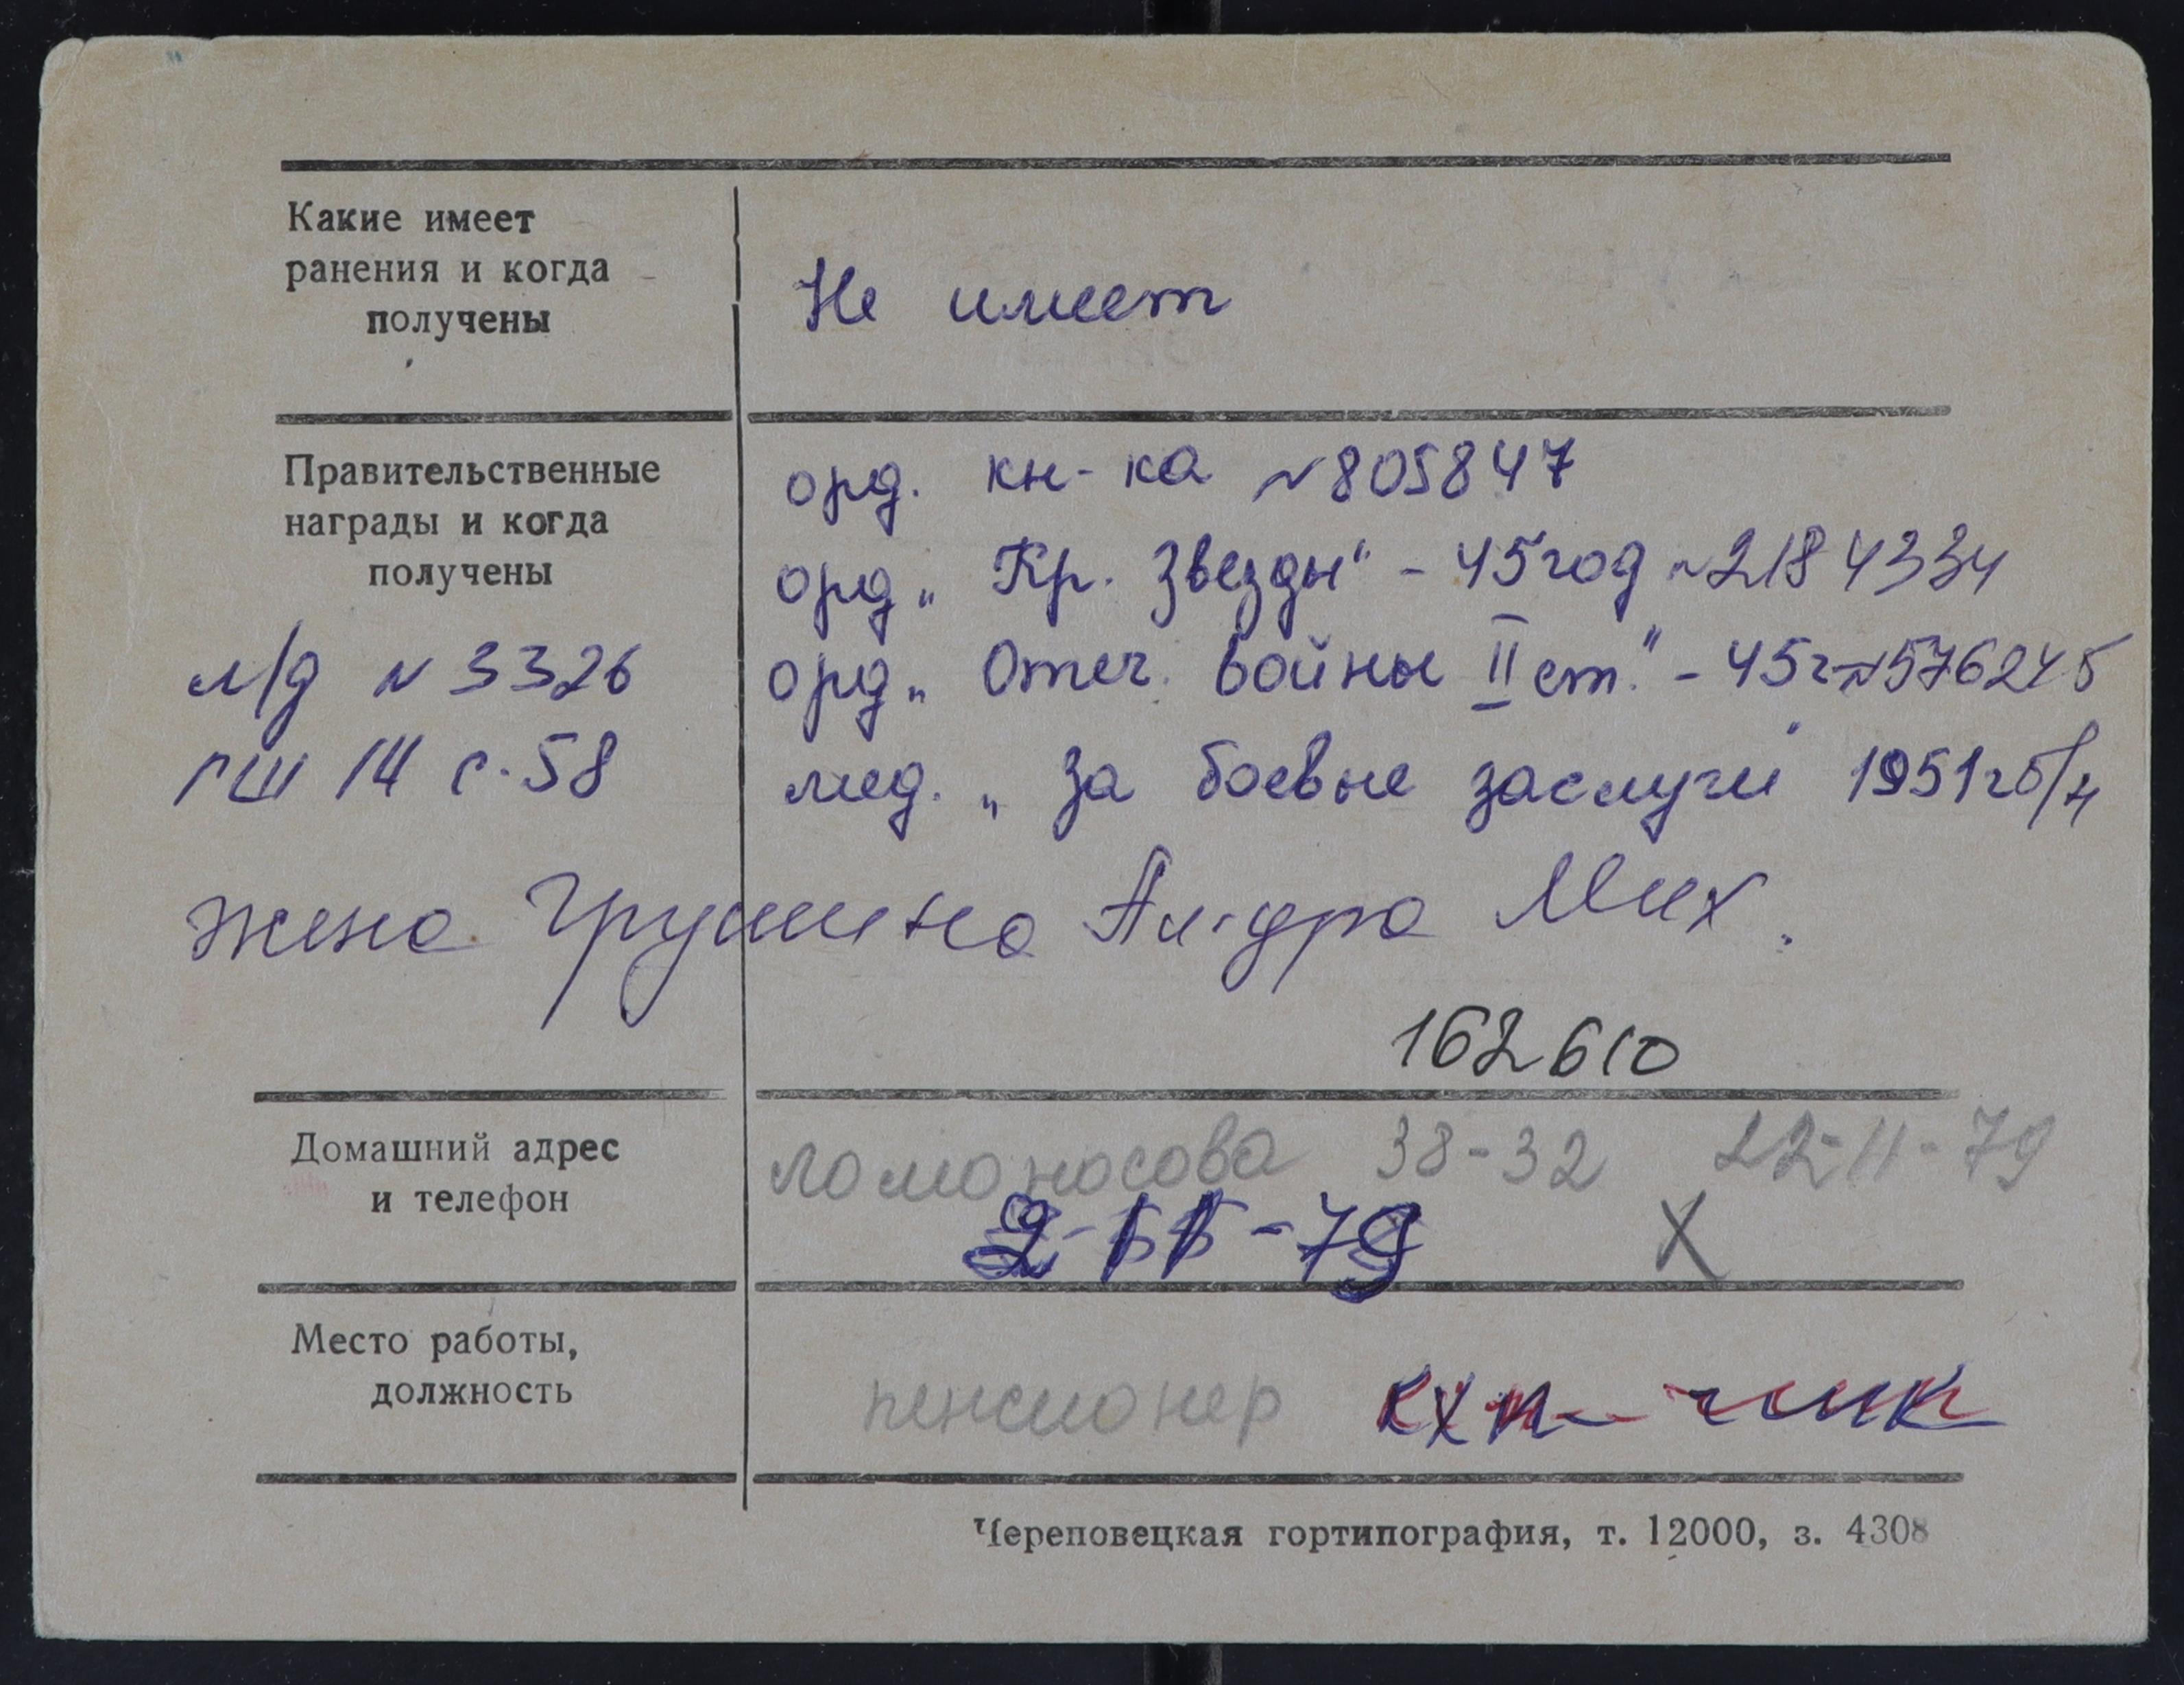 Какие имеет
ранения и когда
получены
Не имеет
Правительственные
награды и когда
получены
орд. кн-ка №805847
орд „Кр. Звезды" - 45 год №2184334
орд „Отеч. войны II ст." - 45 г №576245
мед. „За боевые заслуги 1951г б/н
л/д № 3326
ГШ 14 с. 58
жена Грушина Ал-дра Мих.
162610
Домашний адрес
и телефон
Ломоносова 38-32 22-11-79
2-11-79 X
Место работы,
должность
пенсионер
Череповецкая гортипография, т. 12000, з. 4308